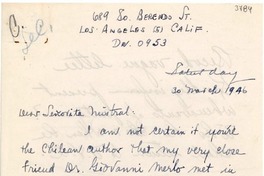 3984
689 So. Berendo St.
Los Angeles (5) Calif.
Dr. 0953
Saturday
30 March 1946
Dear Señorita Mistral:
I am not certain if you're
the Chilean author that my very close
friend Dr. Giovanni Merlo met in